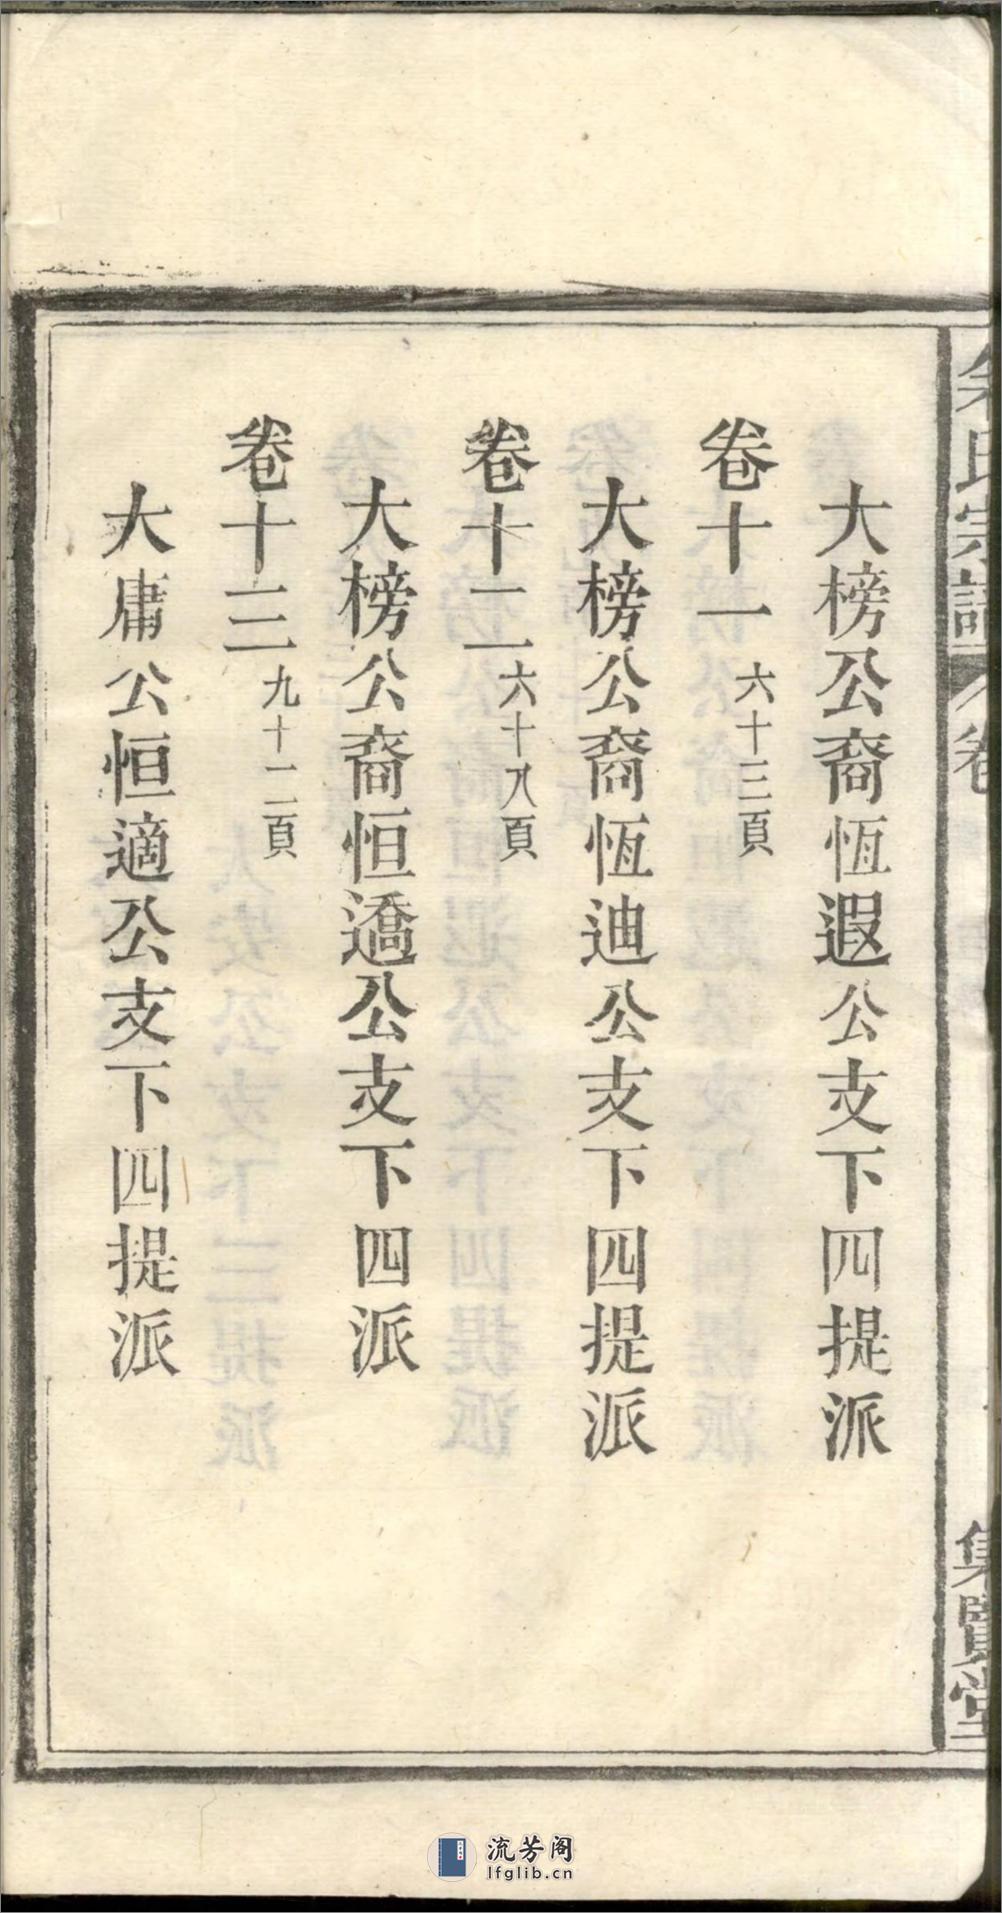 大榜公裔恆遐公支下四提派
卷十一 六十三頁
大榜公裔恆迪公支下四提派
卷十二 六十八頁
大榜公裔恒遹公支下四派
卷十三 九十二頁
大庸公恒適公支下四提派
氏宗譜 卷
集賢堂
流芳阁
lfglib.cn